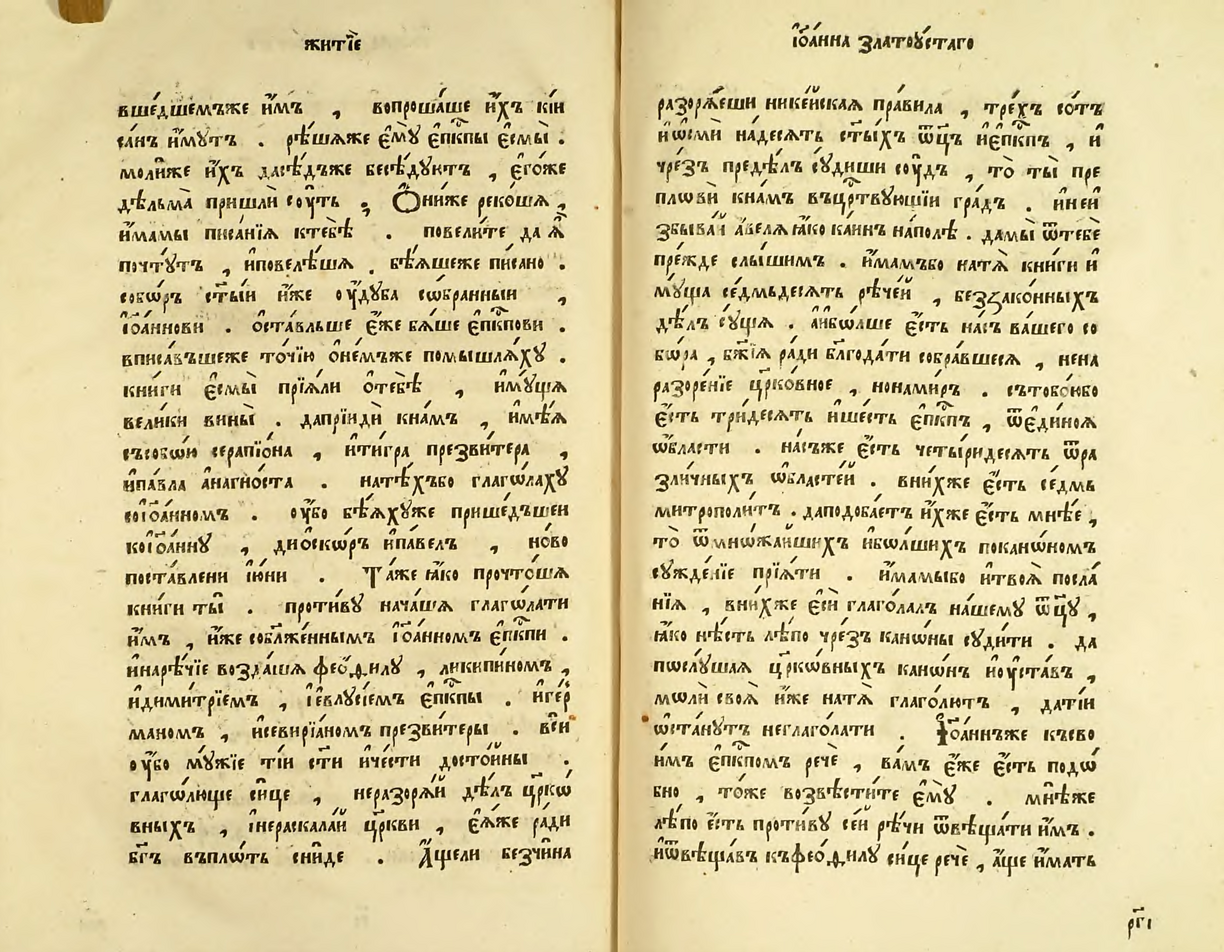 житїе
вше́дшемъже и҆́мъ , вопроша́ше и҆́хъ кі́и
са́нъ и҆́мꙋтъ . рѣ́шѧже є҆мꙋ̀ є҆пⷭ҇кпы є҆смы̀ .
моли́же и҆́хъ дасѣ́дъже бесѣ́дꙋютъ , є҆го́же
дѣ́льма пришлѝ соу́ть . Ѻ҆ни́же реко́шѧ ,
и҆́мамы писа́нїѧ ктебѣ̀ . повели́те да ѧ҆̀
почтꙋ́тъ , и҆повелѣ́шѧ . бѣ́ѧшеже пи́сано .
собѡ́ръ ст҃ы́и и҆́же оу҆дꙋ́ба сѡ́бранныи ,
і҆ѡа́ннови . ѻ҆ста́вльше є҆́же бѧ́ше є҆пⷭ҇кпови .
вписа́въшеже то́чїю ѻ҆не́мъже помышлѧ́хꙋ .
кни́ги є҆смы̀ прїѧ́ли ѻ҆тебѣ̀ , и҆мꙋ́щѧ
вели́ки вины̀ . дапрїидѝ кна́мъ , и҆мѣ́ѧ
съсобѡ́и серапїо́на , и҆ти́гра презви́тера ,
и҆па́вла а҆нагно́ста . натѣ́хъбо глаго́лахꙋ
соі҆ѡа́нномъ . оу҆́бо бѣ́ѧхꙋже прише́дъшеи
коі҆ѡа́ннꙋ , диѻ́скѡръ и҆па́велъ , но́во
поста́влени і҆ю́ни . Та́же ꙗ҆́ко прочто́шѧ
кни́ги ты̀ . проти́вꙋ нача́шѧ глаго́лати
и҆́мъ , и҆́же соблаже́ннымъ і҆ѡа́нномъ є҆пⷭ҇кпи .
и҆наре́чїе возда́шѧ фео́филꙋ , ликипи́номъ ,
и҆дими́трїемъ , і҆евлꙋ́сіемъ є҆пⷭ҇кпы . и҆ге́р
маномъ , и҆севирїа́номъ презви́теры . вси́
оу҆́бо мꙋ́жїе ті́и ст҃и и҆че́сти досто́йны .
глаго́люще си́це , неразорѧ́й дѣ́лъ цр҃кѡ́
вныхъ , і҆нераскала́й цр҃кви , є҆ѧ́же ра́ди
бг҃ъ въпло́ть сни́де . А҆́щели безчи́на
і҆ѡа́нна златоꙋ́стаго
разорѧ́еши нике́искаѧ пра́вила , тре́хъ со́тъ
и҆ѡсмѝ на́десѧть ст҃ы́хъ ѿц҃ъ и҆є҆пⷭ҇кпъ , и҆
чре́зъ предѣ́лъ сꙋ́диши соу́дъ , то ты̀ пре
плѡвѝ кна́мъ въцр҃твꙋющїи гра́дъ . и҆неи
збыва́й а҆́велѧ ꙗ҆́ко ка́инъ напо́лѣ . дамы̀ ѿтебѐ
пре́жде слы́шимъ . и҆́мамъбо натѧ̀ кни́ги и҆
мꙋ́ща се́дмьдесѧтъ рѣче́й , беззако́нныхъ
дѣ́лъ сꙋ́щѧ . а҆ибѡ́лше є҆́сть на́съ ва́шего со
бѡ́ра , бж҃їѧ ра́ди благода́ти собра́вшесѧ , нена
разоре́нїе цр҃ко́вное , нонами́ръ . сътобо́юбо
є҆́сть три́десѧть и҆ше́сть є҆пⷭ҇кпъ , ѿе҆ди́ноѧ
ѡ҆́бласти . на́съже є҆́сть четы́ридесѧть ѿра
зли́чныхъ ѡ҆бласте́й . вни́хже є҆́сть се́дмь
митрополи́тъ . даподоба́етъ и҆́хже є҆́сть мнѣ́е ,
то ѿмнѡ́жаишихъ и҆бѡ́лшихъ покано́номъ
сꙋжде́нїе прїѧ́ти . и҆́мамыбо и҆твоѧ̀ посла́
нїѧ , вни́хже є҆сѝ глаго́лалъ на́шемꙋ ѿц҃ꙋ ,
ꙗ҆́ко нѣ́сть лѣ́по чре́зъ кано́ны сꙋди́ти . да
пѡслꙋ́шаѧ цр҃ко́вныхъ кано́нъ и҆оу҆ста́въ ,
мѡлѝ своѧ̀ и҆́же натѧ̀ глаго́лютъ , дати́и
ѡ҆ста́нꙋтъ неглаго́лати . І҆ѡа́ннъже късво
и҆́мъ є҆пⷭ҇кпомъ речѐ , ва́мъ є҆́же є҆́сть подѡ́
бно , то́же возвѣсти́те є҆мꙋ̀ . мнѣ́же
лѣ́по є҆́сть проти́вꙋ се́й рѣ́чи ѿвѣща́ти и҆́мъ .
и҆ѿвѣща́въ къфео́филꙋ си́це речѐ , а҆́ще и҆́мать
рг҃і